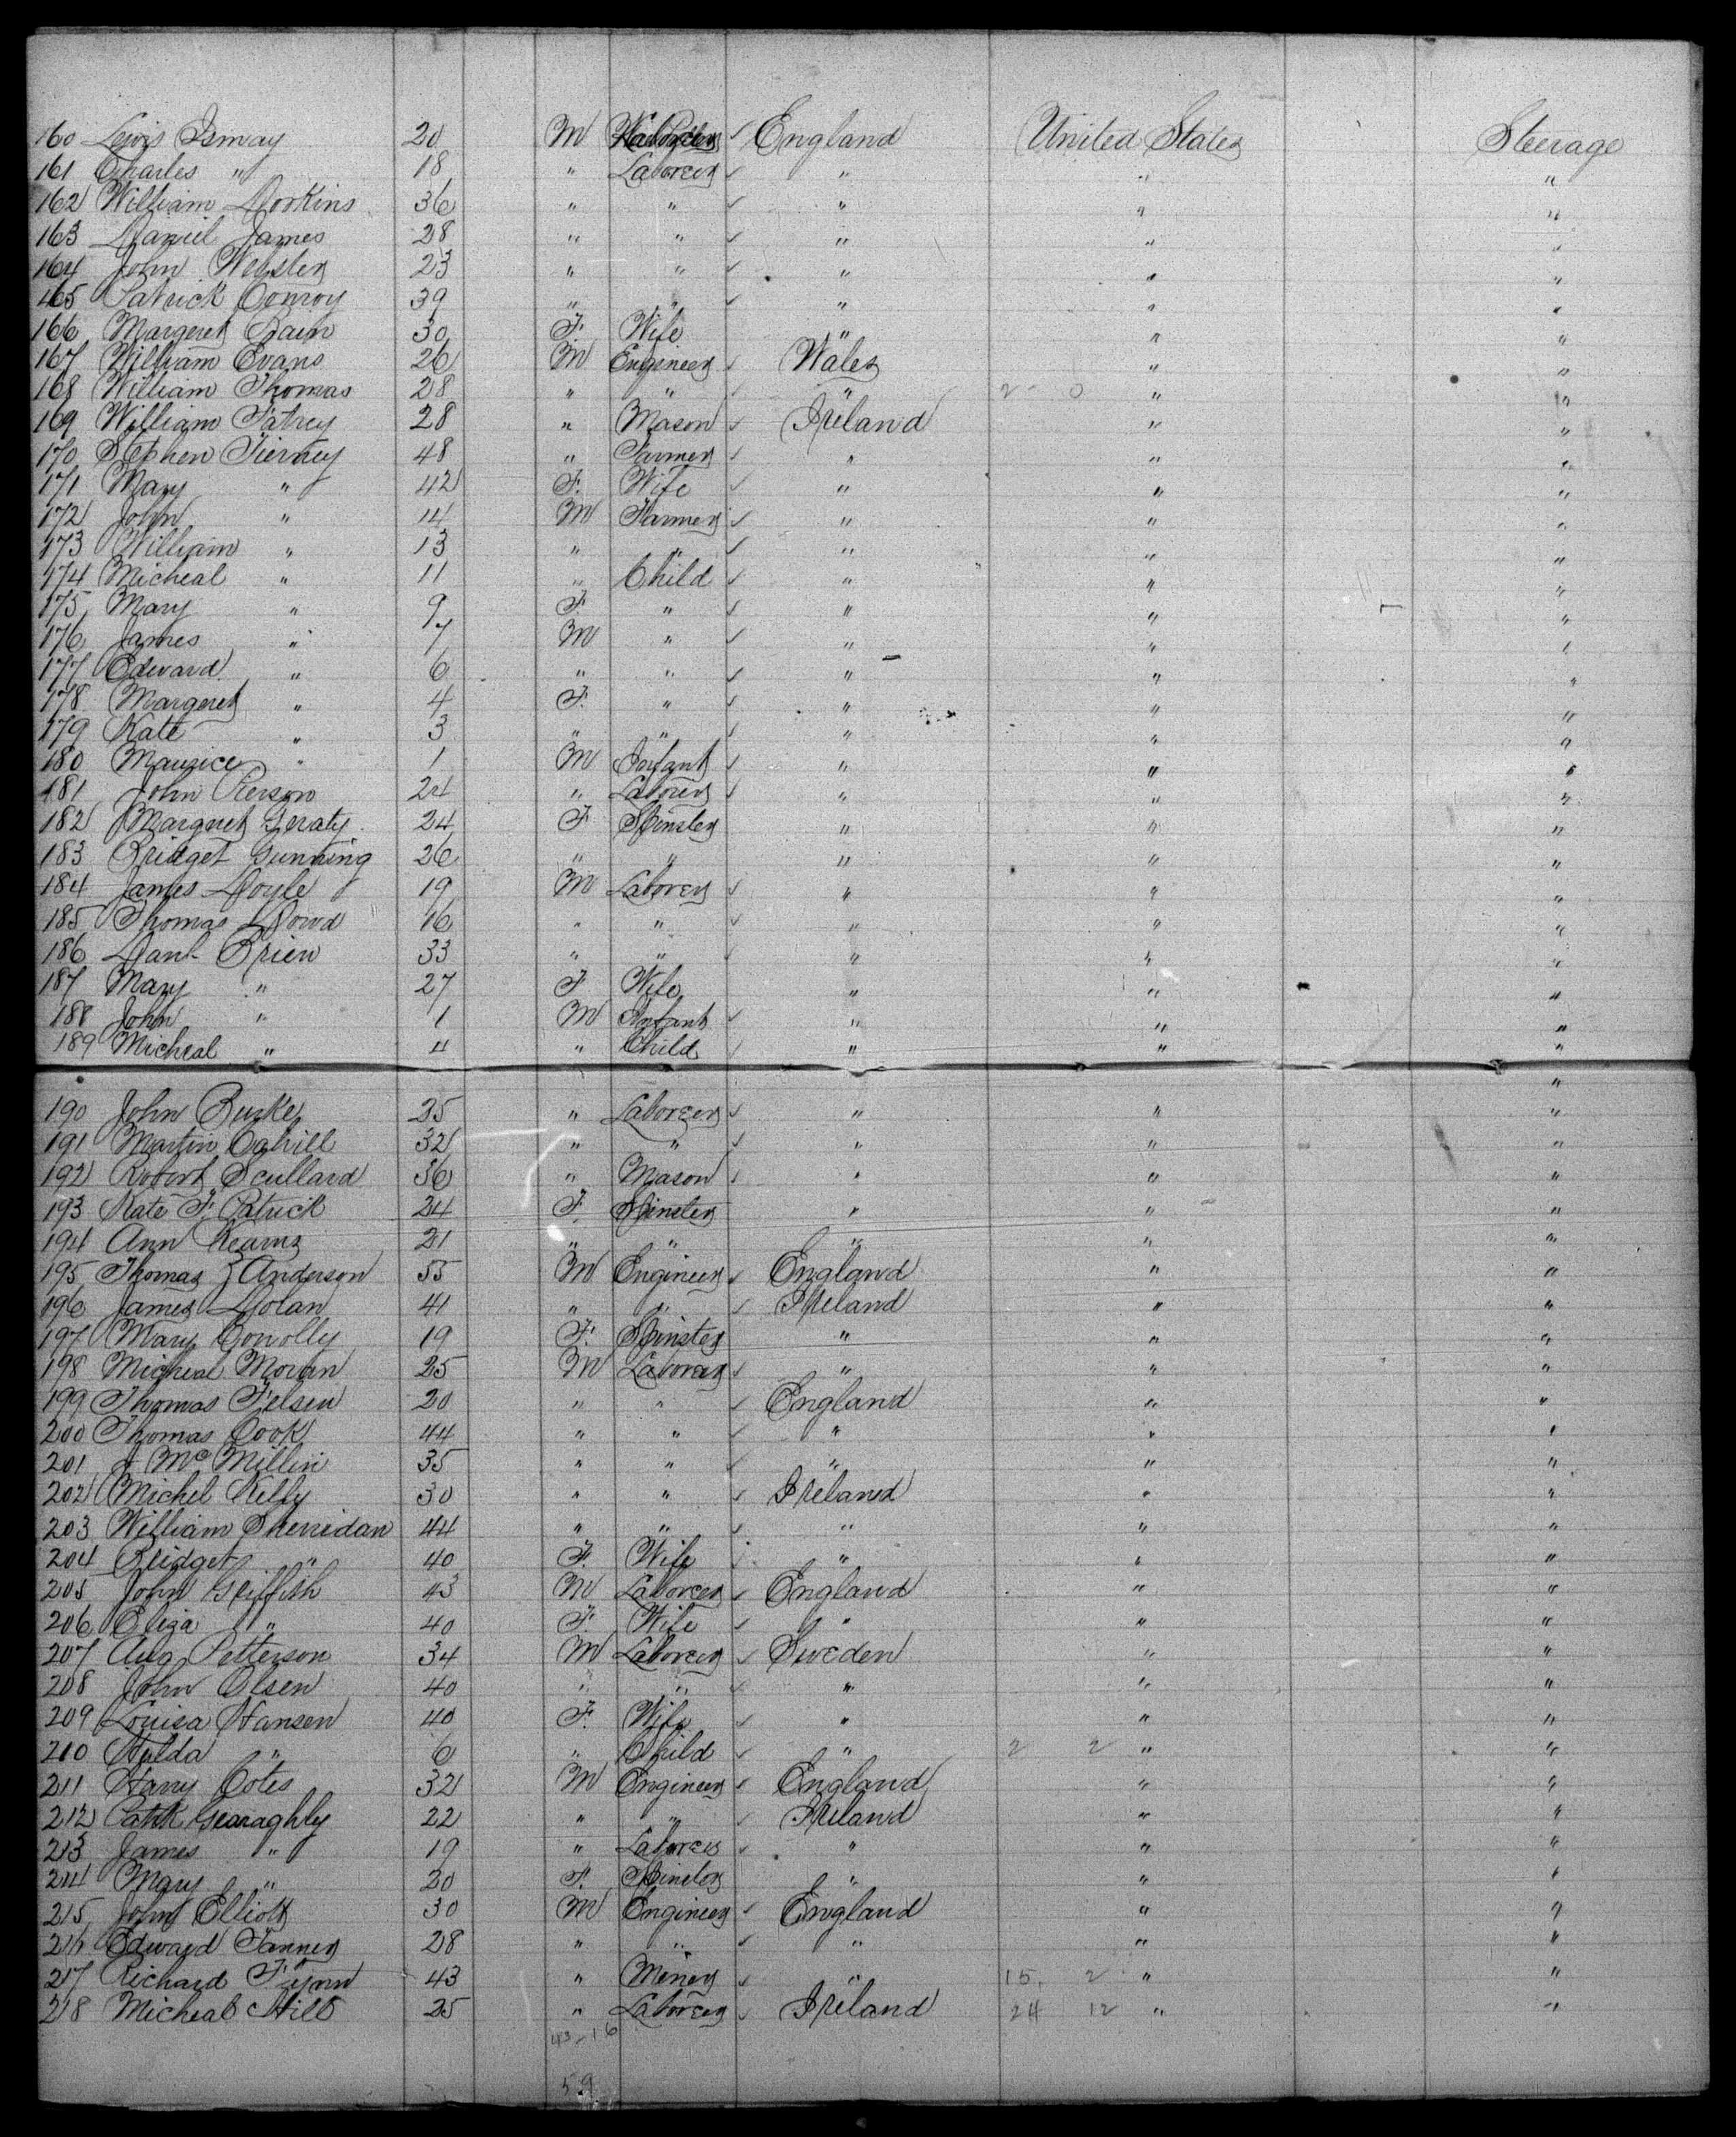 160 Lewis Ismay 20 M England United States Steerage
161 Charles " 18 " Laborer " " "
162 William Dorkins 36 " " " " "
163 Daniel James 28 " " " " "
164 John Webster 23 " " " " "
165 Patrick Conroy 39 " " " " "
166 Margeret Bain 30 F. Wife " " "
167 William Evans 26 M Engineer Wales " "
168 William Thomas 28 " " " 2 0 " "
169 William 28 " Mason Ireland " "
170 Stephen Tierney 48 " Farmer " " "
171 Mary " 42 F. Wife " " "
172 John " 14 M Farmer " " "
173 William " 13 " " " " "
174 Micheal " 11 " Child " " "
175 Mary " 9 F " " " "
176 James " 7 M " " " "
177 Edward " 6 " " " " "
178 Margeret " 4 F. " " " "
179 Kate " 3 " " " " "
180 Maurice " 1 M Infant " " "
181 John Pierson 24 " Laborer " " "
182 Margeret Geraty 24 F Spinster " " "
183 Bridget Gunning 26 " " " " "
184 James Doyle 19 M Laborer " " "
185 Thomas Dowd 16 " " " " "
186 Danl Brien 33 " " " " "
187 Mary " 27 F Wife " " "
188 John " 1 M Infant " " "
189 Micheal " 4 " Child " " "
"
190 John Burke 25 " Laborer " " "
191 Martin Cahill 32 " " " " "
192 Robert Scullard 36 " Mason " " "
193 Kate F. Patrick 24 F. Spinster " " "
194 Ann Kearns 21 " " " " "
195 Thomas Anderson 55 M Engineer England " "
196 James Dolan 41 " " Ireland " "
197 Mary Conolly 19 F. Spinster " " "
198 Micheal Moran 25 M Laborer " " "
199 Thomas Felsen 20 " " England " "
200 Thomas Cook 44 " " " " "
201 J McMillin 35 " " " " "
202 Michel Kelly 30 " " Ireland " "
203 William Sherridan 44 " " " " "
204 Bridget " 40 F. Wife " " "
205 John Griffith 43 M Laborer England " "
206 Eliza " 40 F. Wife " " "
207 Aug Petterson 34 M Laborer Sweden " "
208 John Olsen 40 " " " " "
209 Louisa Hansen 40 F. Wife " " "
210 Hulda " 6 " Child " 2 2 " "
211 Harry Cotes 32 M Engineer England " "
212 Patk Gearaghly 22 " " Ireland " "
213 James " 19 " Laborer " " "
214 Mary " 20 F. Spinster " " "
215 John Elliott 30 M Engineer England " "
216 Edward Tanner 28 " " " " "
217 Richard Flynn 43 " Miner " 15. 2 " "
218 Micheal Hill 25 " Laborer Ireland 24 12 " "
43-16
59